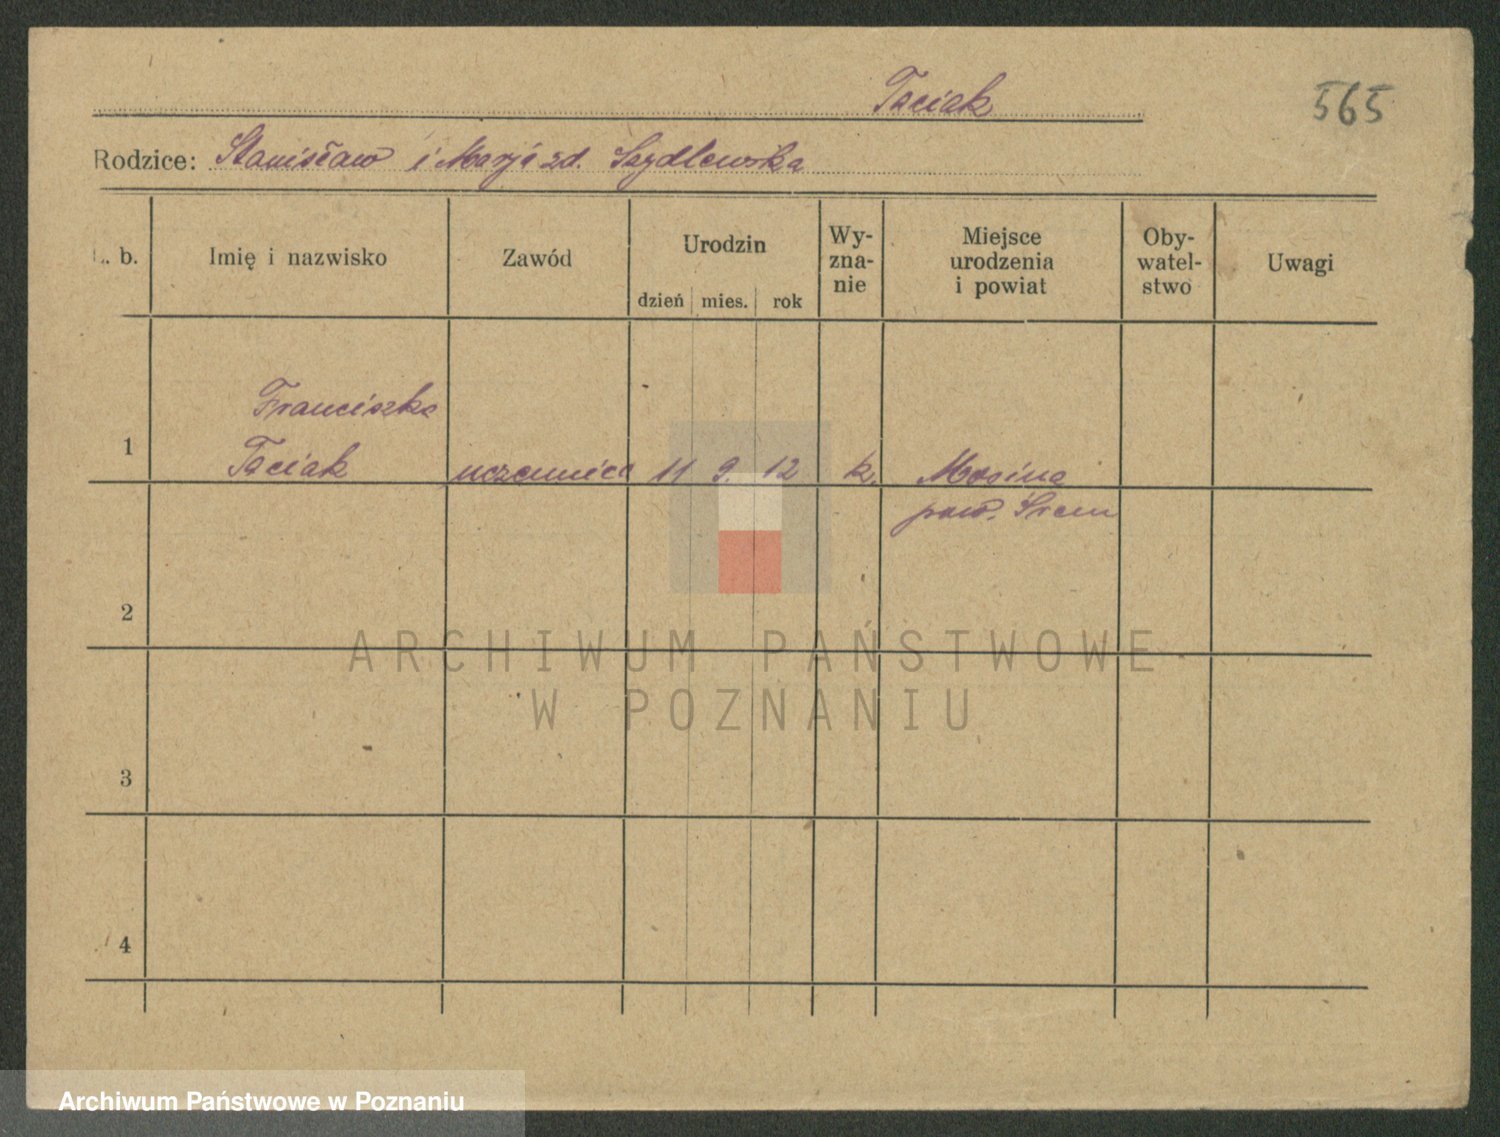 Taciak
565
Rodzice: Stanisław i Marja zd. Szydlewska
L. b.
Imię i nazwisko
Zawód
Urodzin
dzień mies. rok
Wy-
zna-
nie
Miejsce
urodzenia
i powiat
Oby-
watel-
stwo
Uwagi
Franciszka
1 Taciak uczennica 11 9. 12 k. Mosina
pow. Śrem
2
ARCHIWUM PAŃSTWOWE
W POZNANIU
3
4
Archiwum Państwowe w Poznaniu